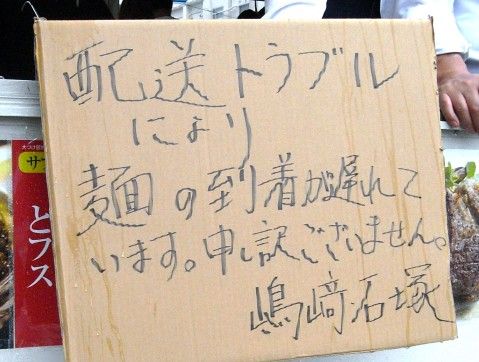 配送トラブル
により
麺の到着が遅れて
います。申し訳ございません。
嶋﨑石塚
サ
とフス